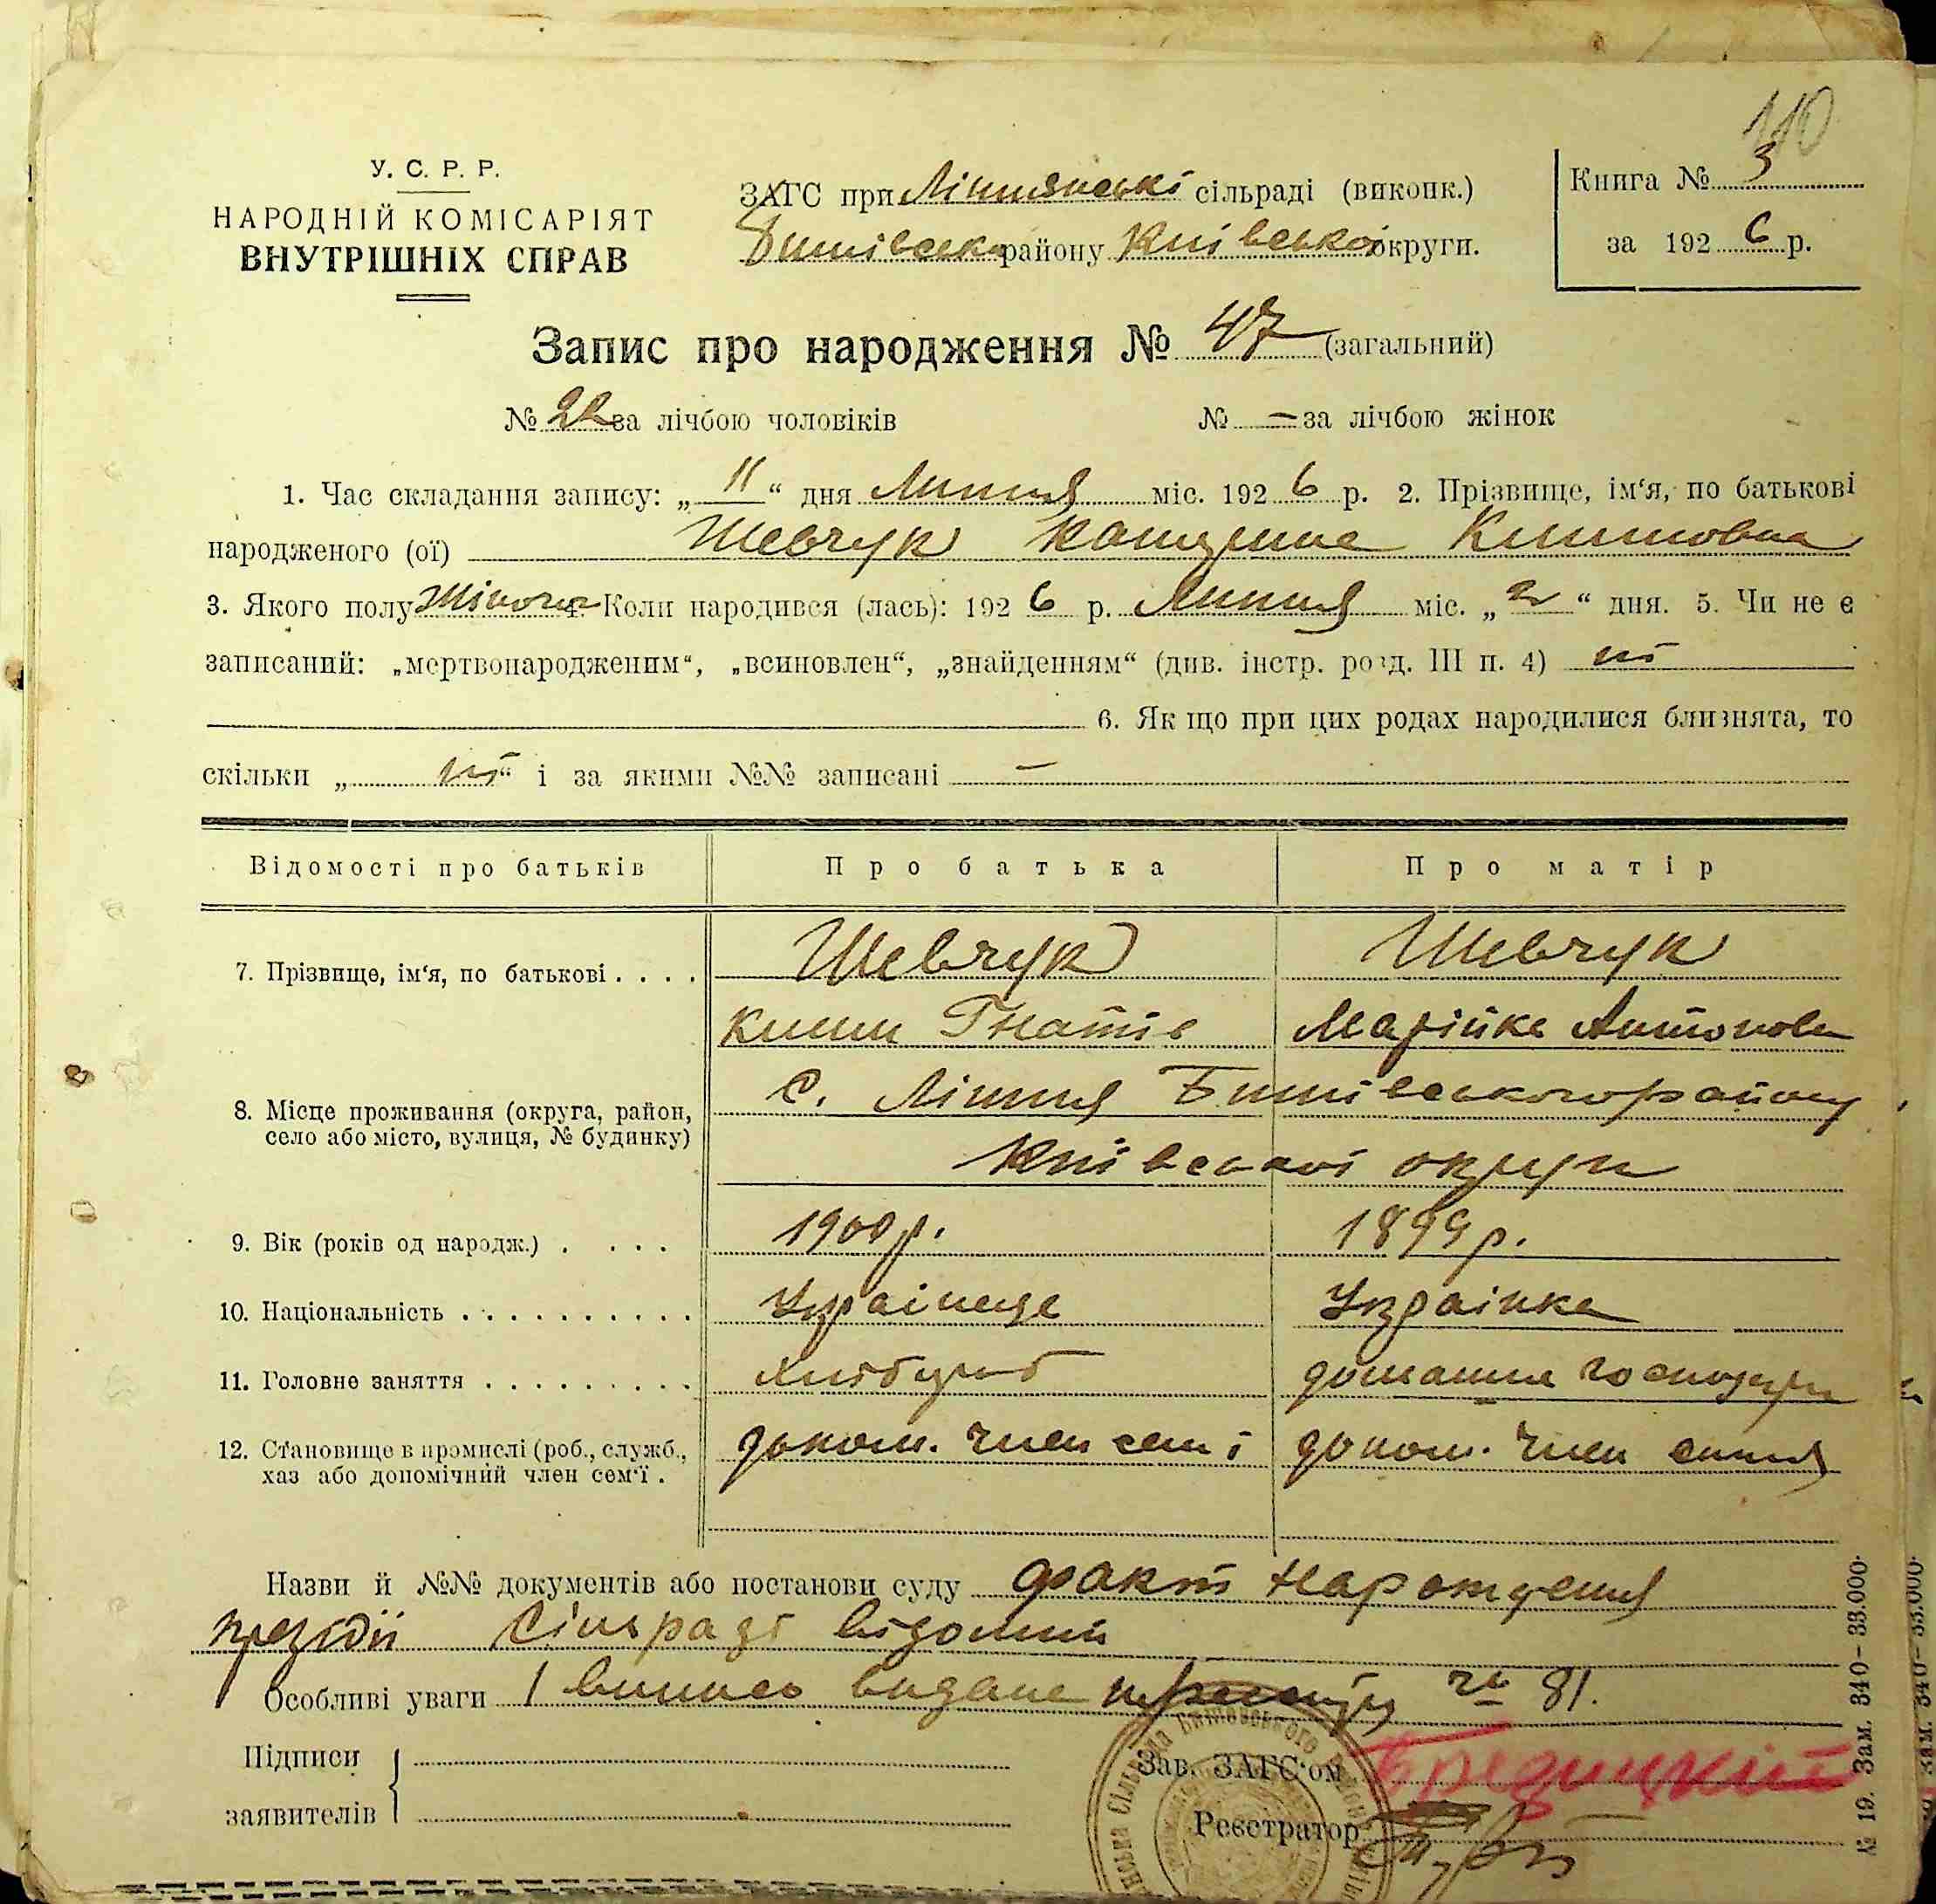 110
У. С. Р. Р.
НАРОДНІЙ КОМІСАРІЯТ
ВНУТРІШНІХ СПРАВ
ЗАГС при Ліпнянські сільраді (виконк.)
району Київської округи.
Книга № 3
за 1926 р.
Запис про народження № 47 (загальний)
№ 22 за лічбою чоловіків № — за лічбою жінок
1. Час складання запису: „ 11 “ дня Липня міс. 1926 р. 2. Прізвище, ім‘я, по батькові
народженого (ої) Шевчук Климовна
3. Якого полу Жіноча 4. Коли народився (лась): 1926 р. Липня міс. „ 2 “ дня. 5. Чи не є
записаний: „мертвонародженим“, „всиновлен“, „знайденням“ (див. інстр. розд. III п. 4) ні
6. Як що при цих родах народилися близнята, то
скільки „ ні “ і за якими №№ записані —
Відомості про батьків Про батька Про матір
7. Прізвище, ім‘я, по батькові . . . . Шевчук Шевчук
Клим Гнатів Марійка Антонова
8. Місце проживання (округа, район, село або місто, вулиця, № будинку) С. Ліпня Бишівського району
Київської округи
9. Вік (років од народж.) . . . . 1900 р. 1899 р.
10. Національність . . . . . . . . . . Українець Українка
11. Головне заняття . . . . . . . . . Хлібороб домашня
12. Становище в промислі (роб., служб., хаз або допомічний член сем‘ї . допом. член семі допом. член
Назви й №№ документів або постанови суду факт народження
президії Сільраді відомий
Особливі уваги 1 виписо видане чь 81.
Підписи
заявителів
Зав. ЗАГС‘ом
Реєстратор
№ 19. Зам. 340–33.000.